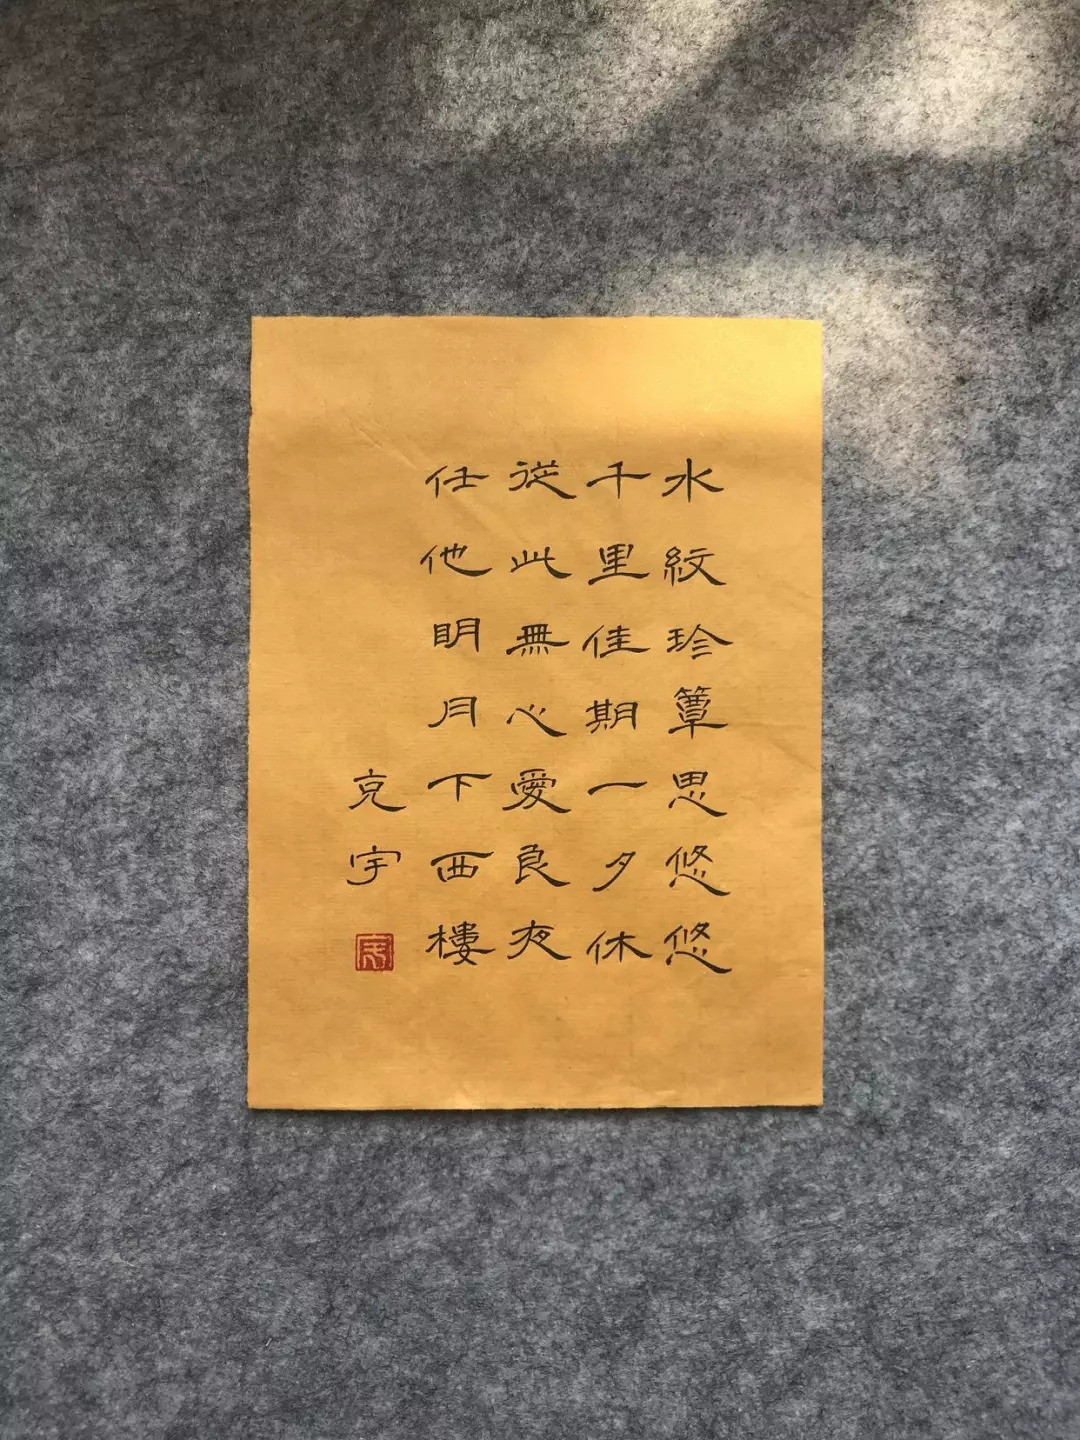 水紋珍簟思悠悠
千里佳期一夕休
從此無心愛良夜
任他明月下西樓
克宇